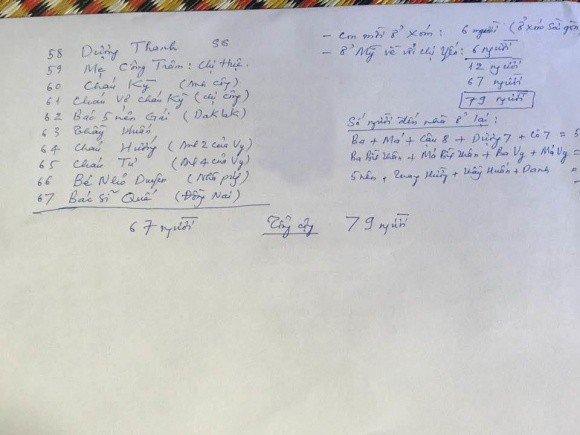 58 Dường Thanh SG
59 Mẹ Công Trâm: Chị Huệ.
60 Cháu Kỳ (Anh Công)
61 Cháu Vợ cháu Kỳ (chị Công)
62 Bác 5 nên Gái (DakLak)
63 Thầy Huấn
64 Cháu Hường (Anh 2 của Vy)
65 Cháu Tư (Anh 4 của Vy)
66 Bé Nhỏ Duyên (Nhà phụ)
67 Bác Sĩ Quế (Đồng Nai)
67 người
Tổng cộng 79 người
- Con mời ở xóm: 6 người (ở xóm Sài gòn
- ở Mỹ về chị Yến: 6 người
12 người
67 người
79 người
Số người đến nhà ở lại:
Ba + Má + Cậu 8 + Dượng 7 + Cô 7 = 5
Ba + Má + Ba Vy + Má Vy =
5 nên, Quay Hường + Thầy Huấn + Danh =